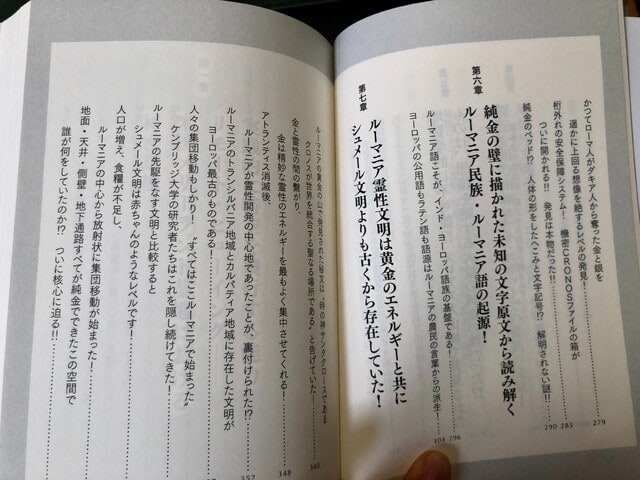 かつてローマ人がダキア人から奪った金と銀を
遥かに上回る想像を絶するレベルの発見!
279
桁外れの安全保障システム! 機密CRONOSファイルの箱が
ついに開かれる!! 発見は本物だった!!
283
純金のベッド!? 人体の形をしたへこみと文字記号!? 解明されない謎!!
290
第六章
純金の壁に描かれた未知の文字原文から読み解く
ルーマニア民族・ルーマニア語の起源!
ルーマニア語こそが、インド・ヨーロッパ語族の基盤である!
296
ヨーロッパの公用語もラテン語も語源はルーマニアの農民の言葉からの派生!
304
第七章
ルーマニア霊性文明は黄金のエネルギーと共に
シュメール文明よりも古くから存在していた!
ルーマニアの黄金の山で発見された秘文は、"時の神サンタクロースである
クロノスが世界を統合する聖なる場所である"と告げていた
340
金と霊性の間の繋がり
金は精妙な霊性のエネルギーを最もよく集中させてくれる!
348
アトランティス消滅後、
ルーマニアが霊性開発の中心地であったことが、裏付けられた!?
352
ルーマニアのトランシルバニア地域とカルパティア地域に存在した文明が
ヨーロッパ最古のものである!
人々の集団移動もしかり! "すべてはここルーマニアで始まった"
ケンブリッジ大学の研究者たちはこれを隠し続けてきた!
ルーマニアの先駆をなす文明と比較すると
シュメール文明は赤ちゃんのようなレベルです!
人口が増え、食糧が不足し、
ルーマニアの中心から放射状に集団移動が始まった!
地面・天井・側壁・地下通路すべてが純金でできたこの空間で
誰が何をしていたのか!? ついに核心に迫る!!